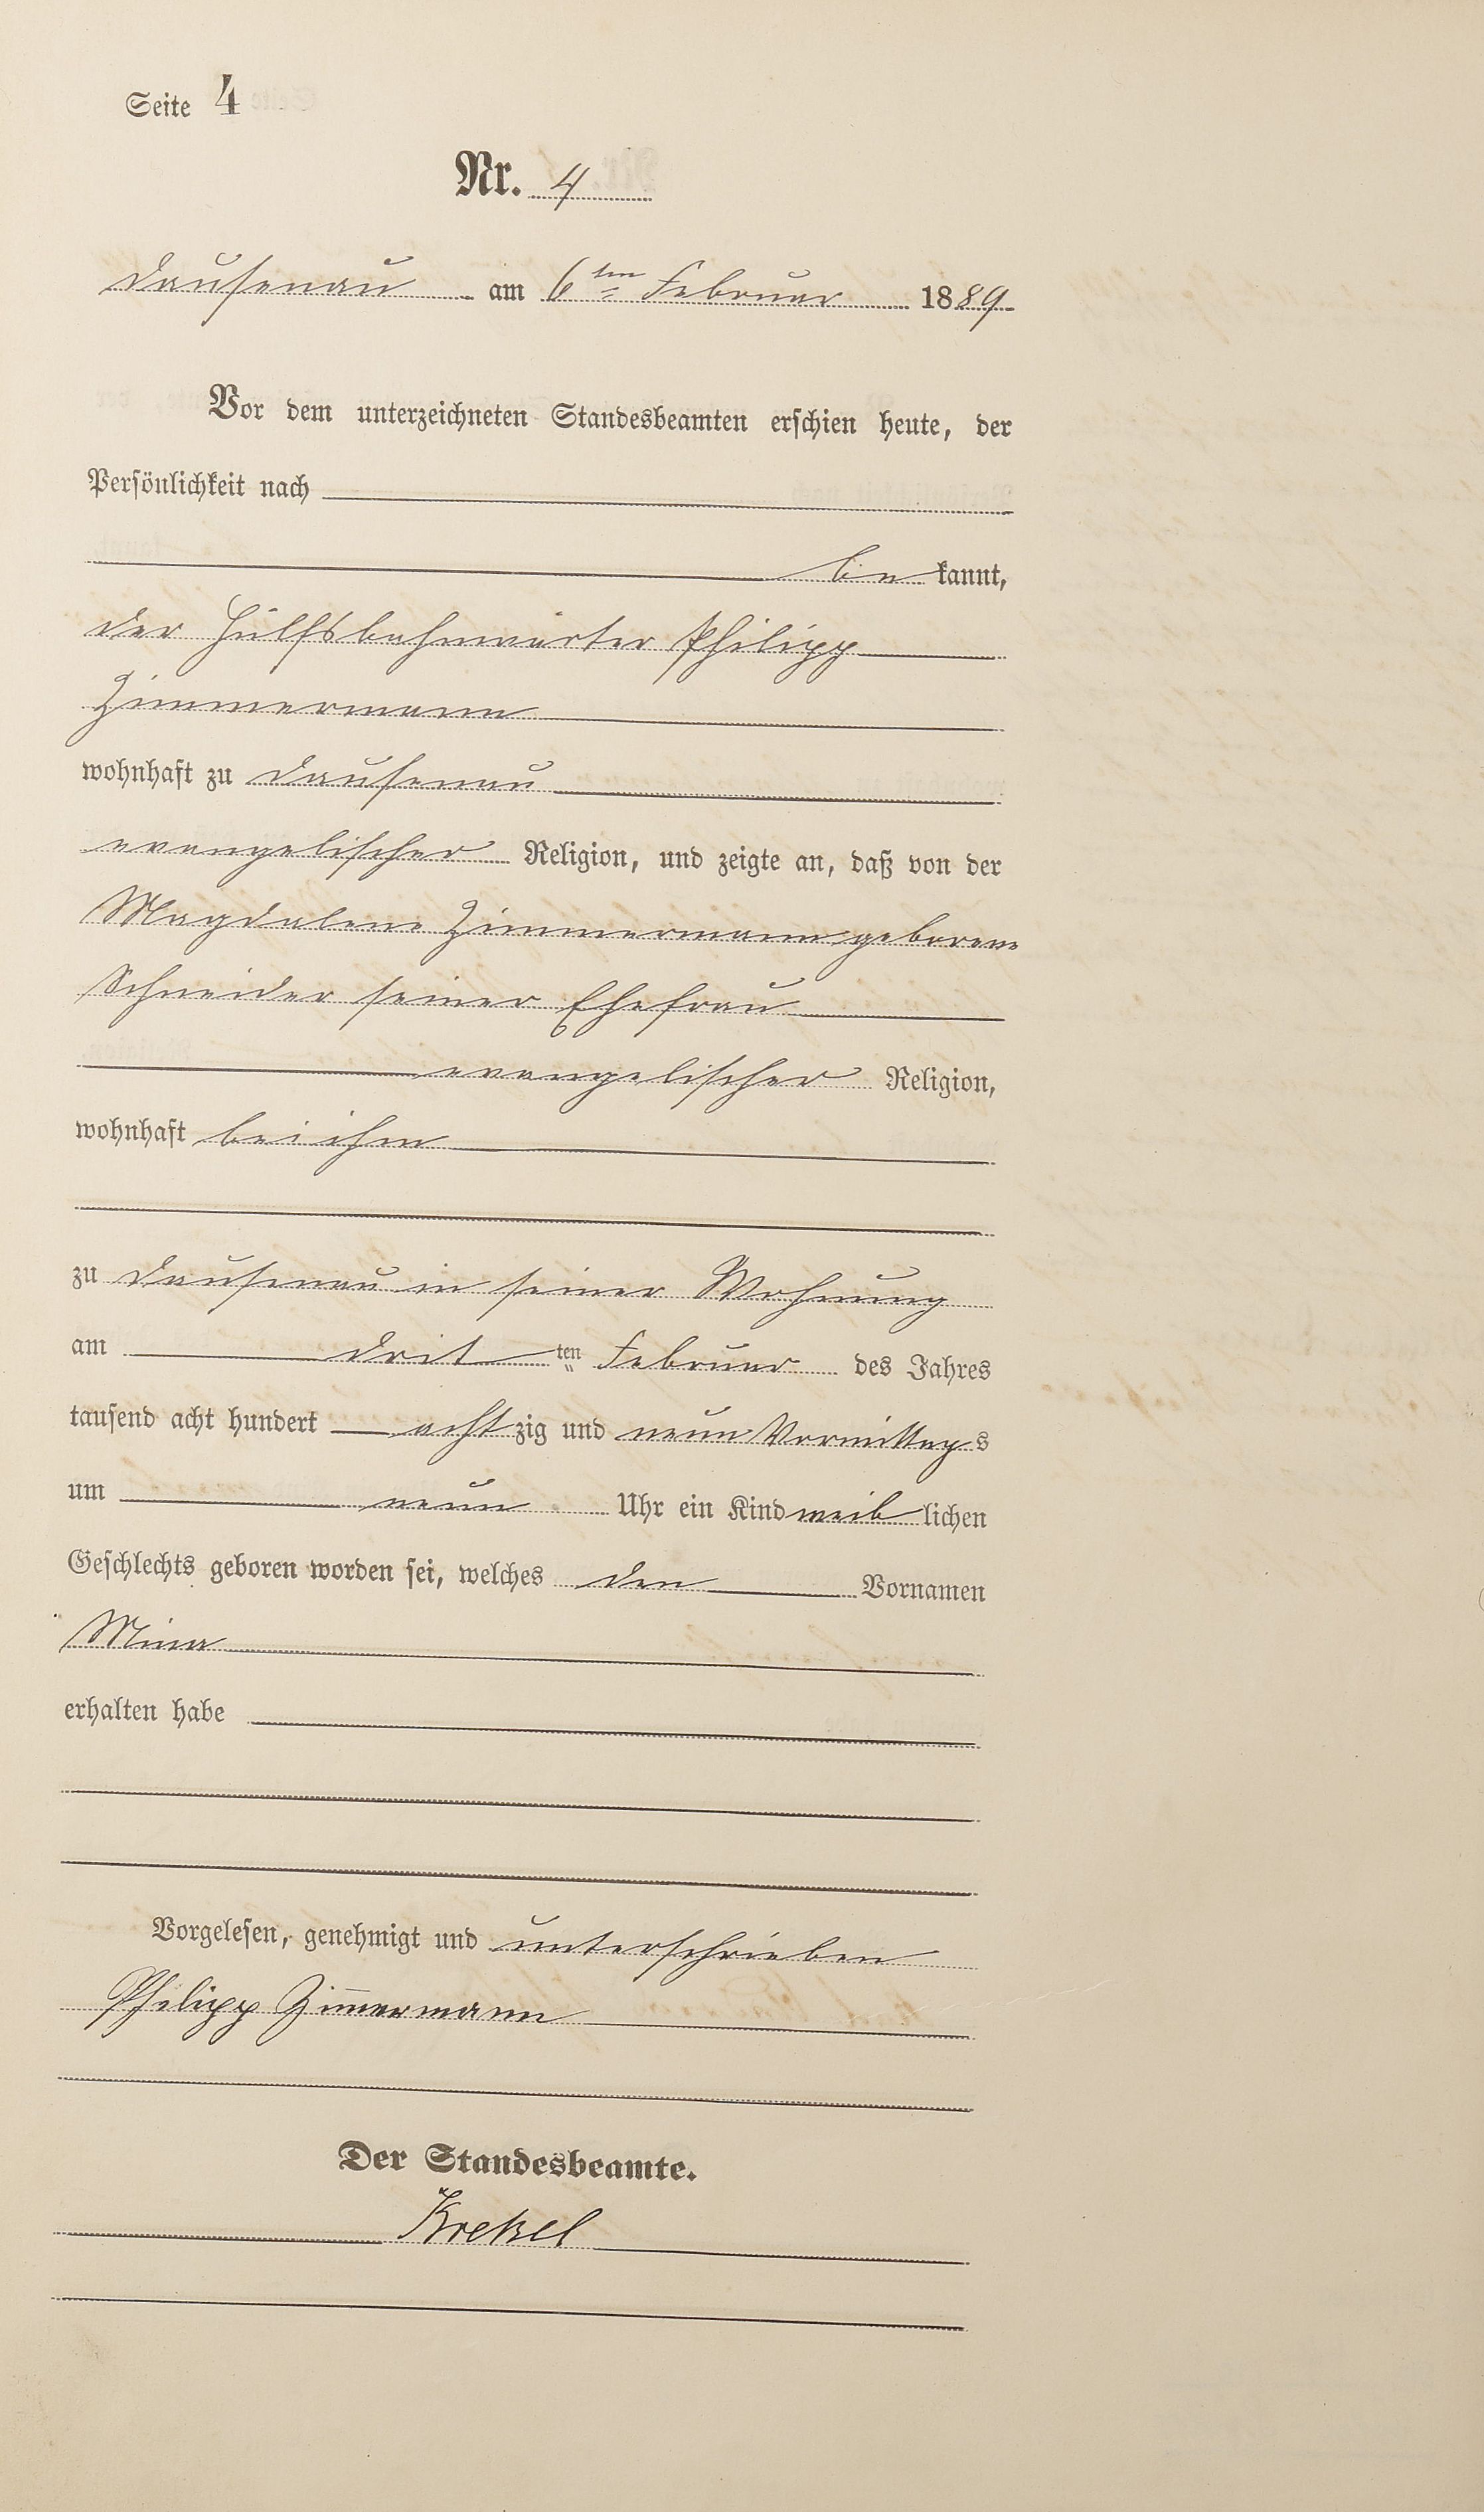 Seite 4
Nr. 4
Dausenau am 6ten Februar 1889
Vor dem unterzeichneten Standesbeamten erschien heute, der
Persönlichkeit nach
bekannt,
der Hülfsbahnwärter Philipp
Zimmermann
wohnhaft zu Dausenau
evangelischer Religion, und zeigte an, daß von der
Magdalene Zimmermann geborene
Schneider seiner Ehefrau
evangelischer Religion,
wohnhaft bei ihm
zu Dausenau in seiner Wohnung
am dritten Februar des Jahres
tausend acht hundert achtzig und neun Vormittags
um neun Uhr ein Kind weiblichen
Geschlechts geboren worden sei, welches den Vornamen
Mina
erhalten habe
Vorgelesen, genehmigt und unterschrieben
Philipp Zimmermann
Der Standesbeamte.
Krekel